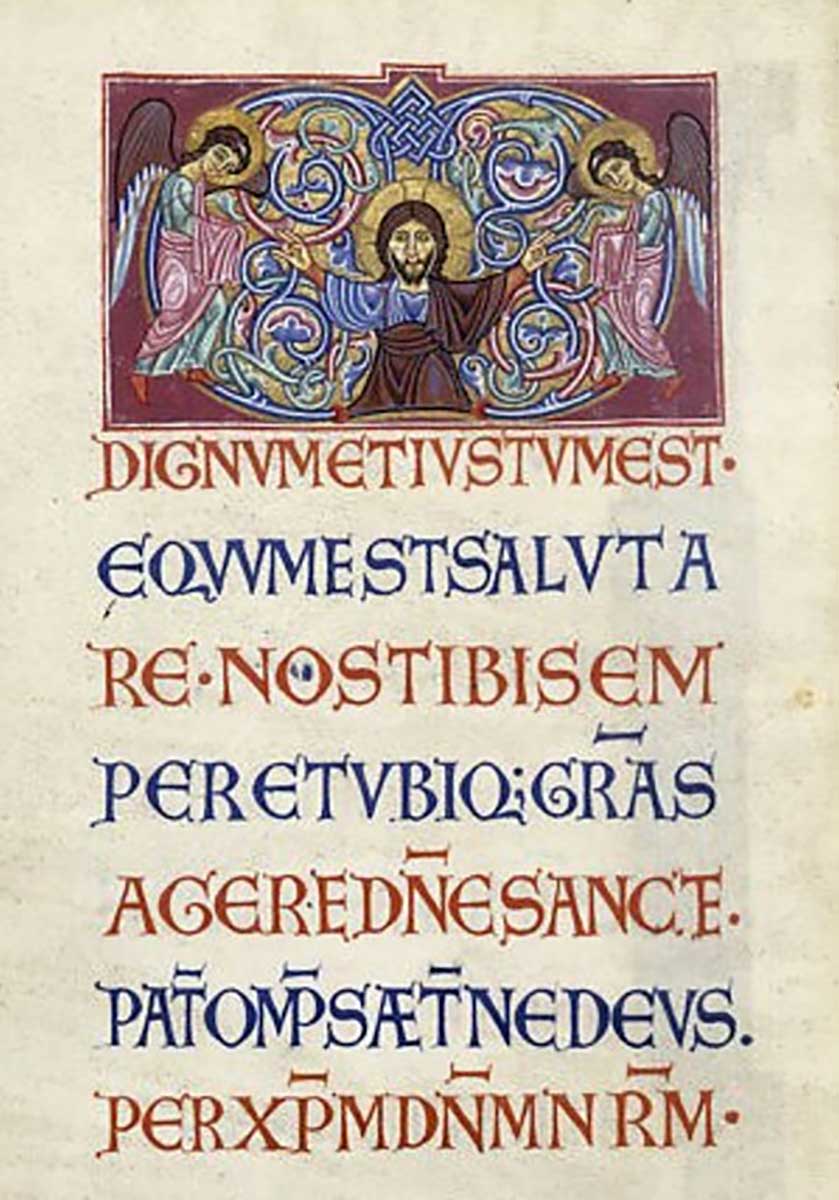 DIGNVMETIVSTVMEST·
EQVVMESTSALVTA
RE·NOSTIBISEM
PERETVBIQ;GRĀS
AGERE·DN̄ESANCTE·
PAT̄OMP̄SÆT̄NEDEVS.
PERXP̄MDN̄MNR̄M·